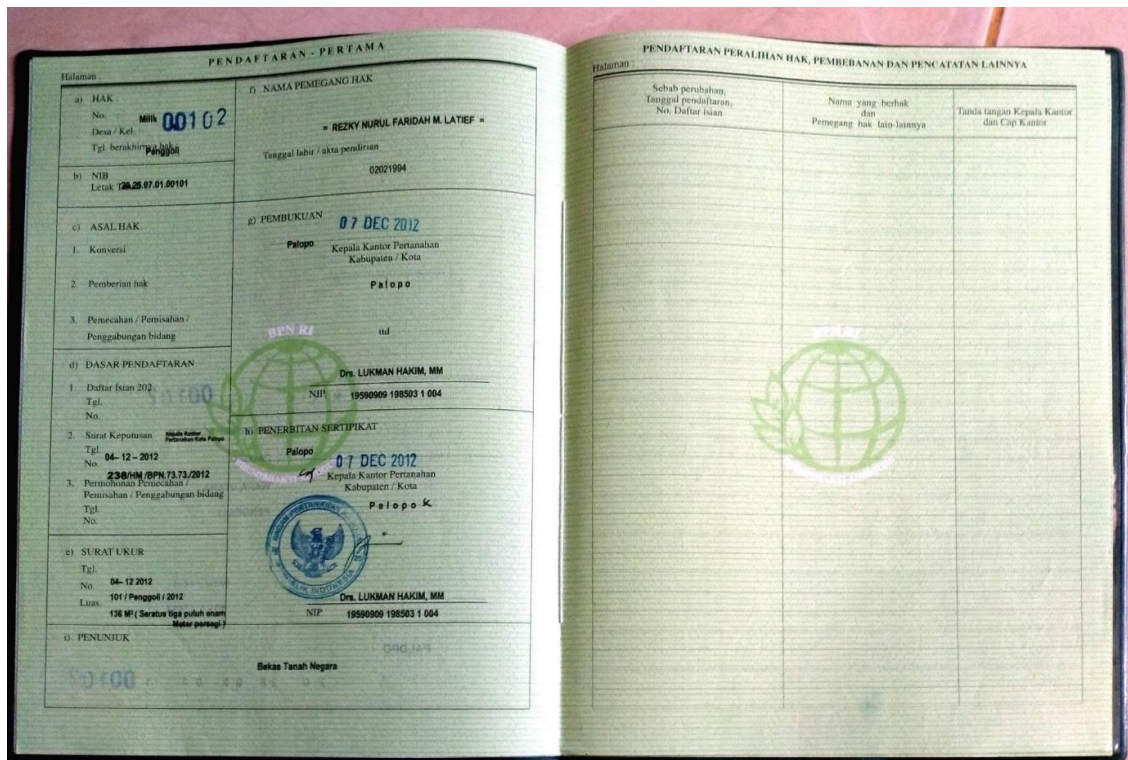 PENDAFTARAN - PERTAMA
Halaman :
a) HAK :
No. Milik 00102
Desa / Kel.
Tgl. berakhirnya hak
Penggoli
b) NIB
Letak
20.25.07.01.00101
c) ASAL HAK
1. Konversi
2. Pemberian hak
3. Pemecahan / Pemisahan /
Penggabungan bidang
d) DASAR PENDAFTARAN
1. Daftar Isian 202
Tgl.
No.
2. Surat Keputusan Kepala Kantor
Pertanahan Kota Palopo
Tgl. 04- 12 – 2012
No.
238/HM /BPN.73.73./2012
3. Permohonan Pemecahan /
Pemisahan / Penggabungan bidang
Tgl.
No.
e) SURAT UKUR
Tgl.
No. 04– 12 2012
101 / Penggoli / 2012
Luas.
136 M² ( Seratus tiga puluh enam
Meter persegi )
f) NAMA PEMEGANG HAK
= REZKY NURUL FARIDAH M. LATIEF =
Tanggal lahir / akta pendirian
02021994
g) PEMBUKUAN
07 DEC 2012
Palopo
Kepala Kantor Pertanahan
Kabupaten / Kota
Palopo
ttd
Drs. LUKMAN HAKIM, MM
NIP 19590909 198503 1 004
h) PENERBITAN SERTIPIKAT
Palopo
07 DEC 2012
Kepala Kantor Pertanahan
Kabupaten / Kota
Palopo
BADAN PERTANAHAN
REPUBLIK INDONESIA
Drs. LUKMAN HAKIM, MM
NIP 19590909 198503 1 004
i) PENUNJUK
Bekas Tanah Negara
BPN RI
PENDAFTARAN PERALIHAN HAK, PEMBEBANAN DAN PENCATATAN LAINNYA
Halaman :
Sebab perubahan,
Tanggal pendaftaran,
No. Daftar isian
Nama yang berhak
dan
Pemegang hak lain-lainnya
Tanda tangan Kepala Kantor
dan Cap Kantor
BPN RI